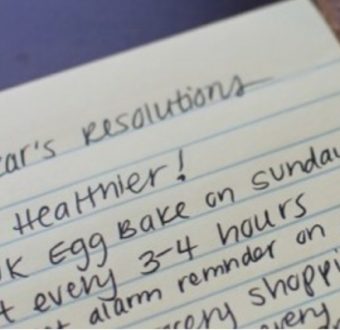 ear's Resolutions
Healthier!
k Egg Bake on Sunday
t every 3-4 hours
t alarm reminder on
cery shoppi
very